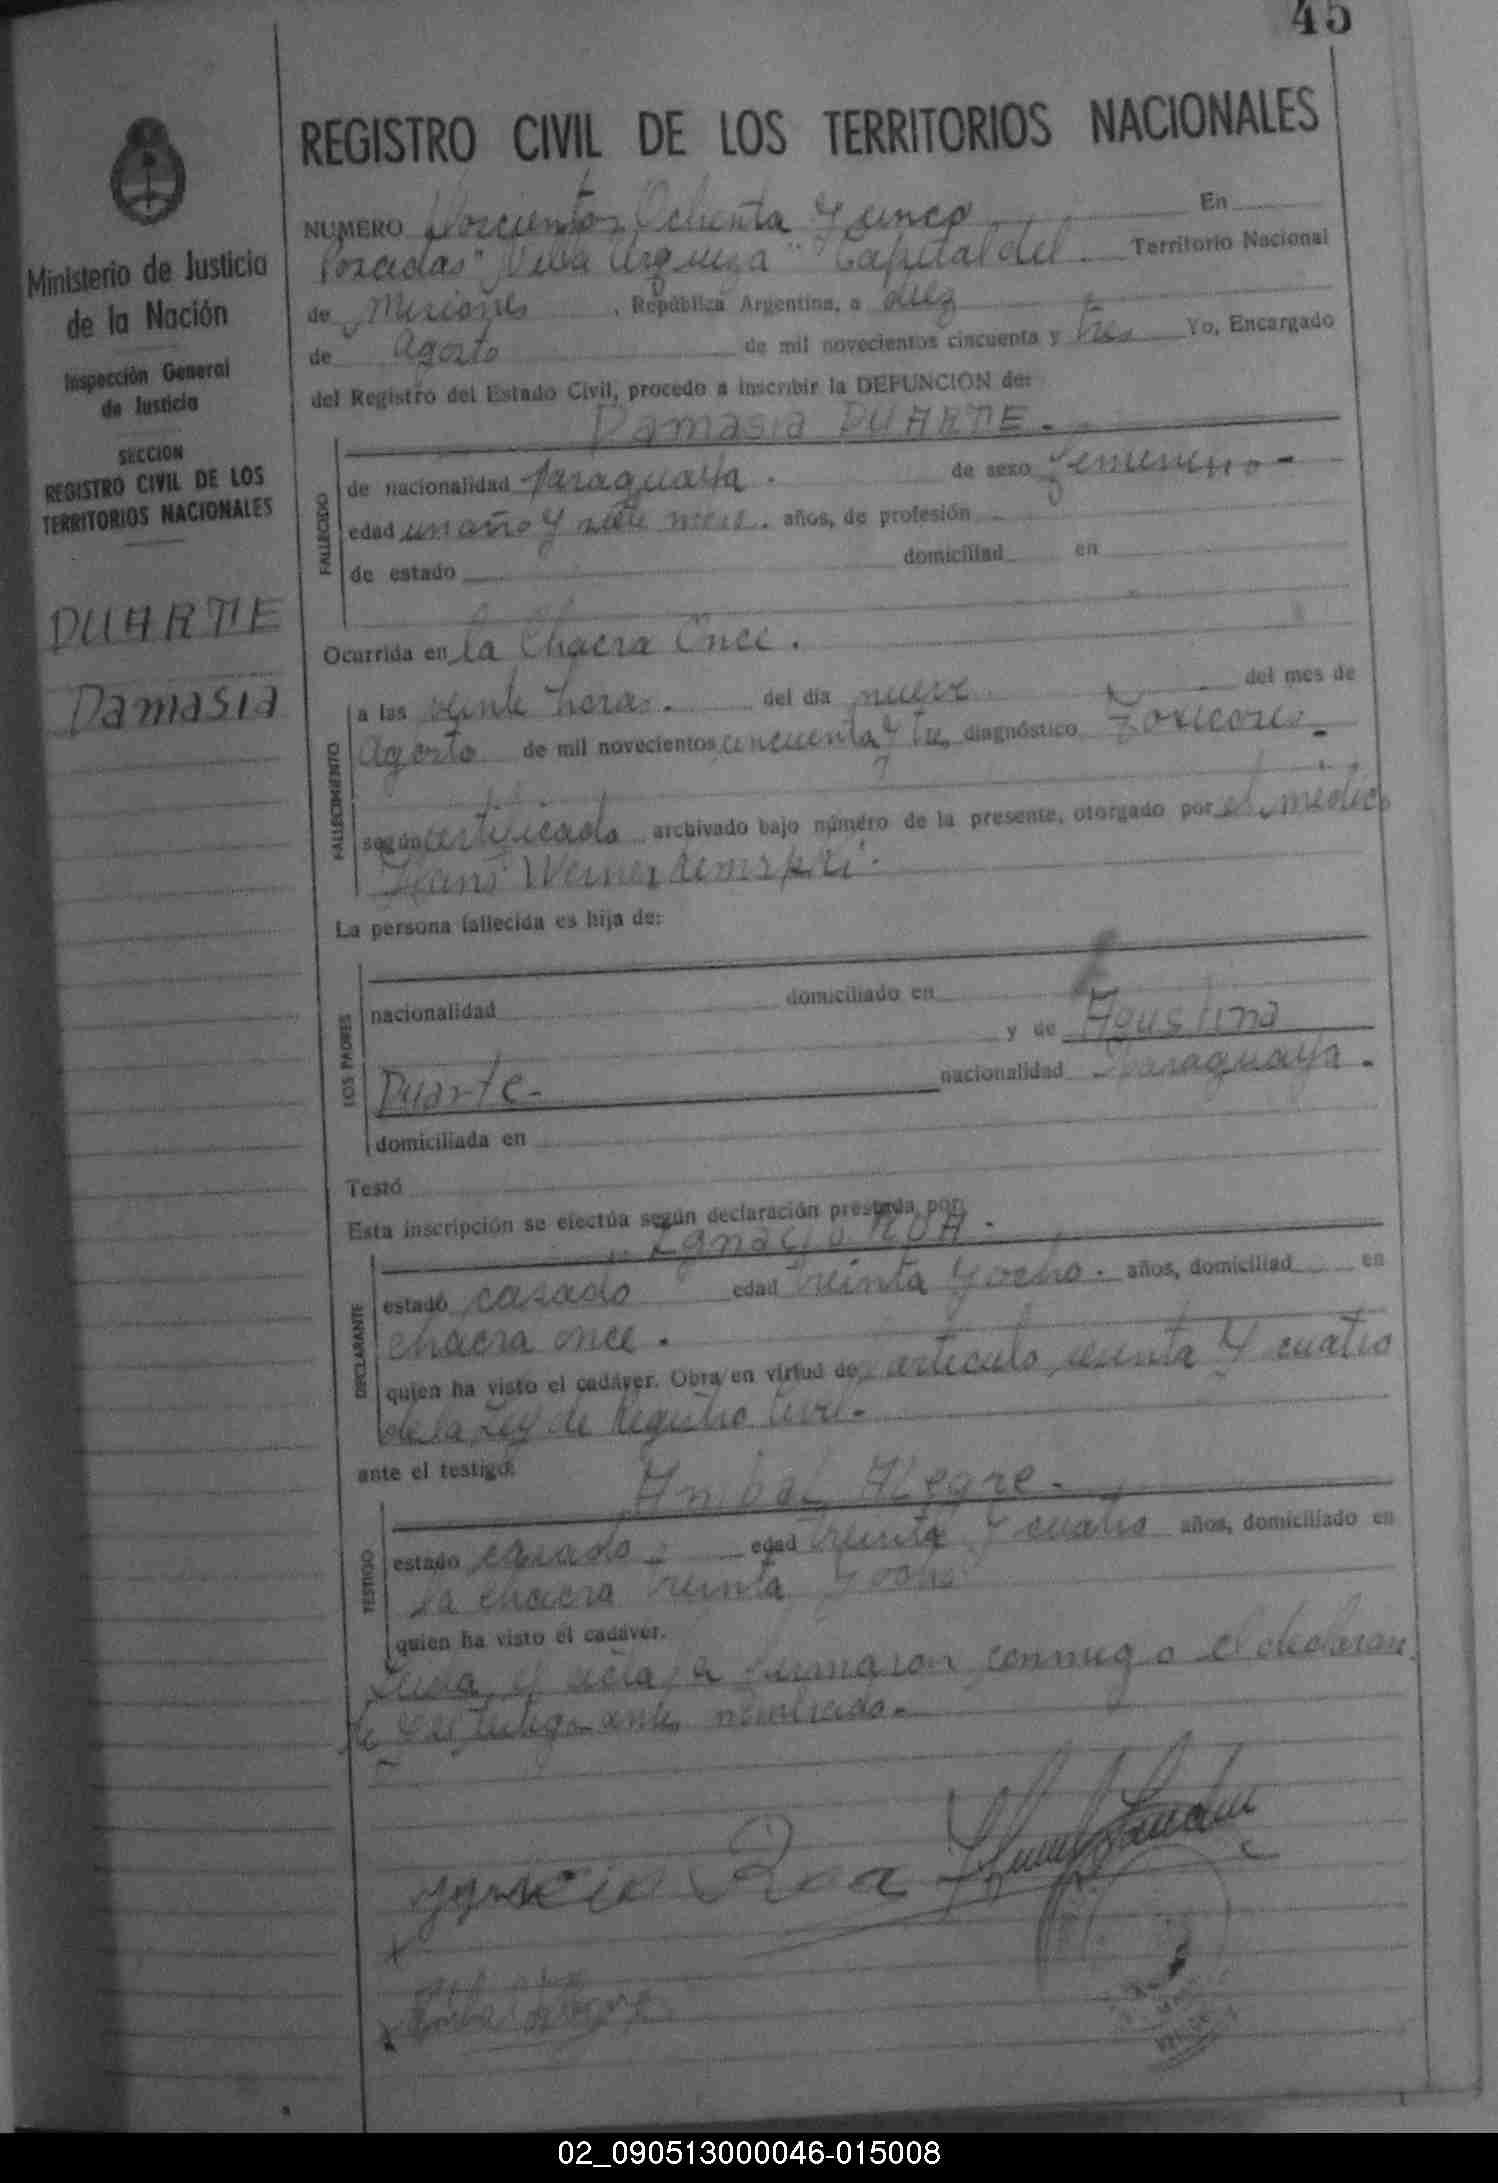 45
REGISTRO CIVIL DE LOS TERRITORIOS NACIONALES
Ministerio de Justicia
de la Nación
Inspección General
de Justicia
SECCION
REGISTRO CIVIL DE LOS
TERRITORIOS NACIONALES
DUARTE
Damasia
NUMERO Doscientos Ochenta y cinco En
Posadas "Villa Urquiza" Capital del Territorio Nacional
de Misiones, República Argentina, a diez
de Agosto de mil novecientos cincuenta y tres Yo, Encargado
del Registro del Estado Civil, procedo a inscribir la DEFUNCION de:
Damasia DUARTE.
FALLECIDO
de nacionalidad Paraguaya. de sexo femenino-
edad un año y siete meses. años, de profesión
de estado domiciliad en
Ocurrida en la Chacra Once.
FALLECIMIENTO
a las veinte horas. del día nueve del mes de
Agosto de mil novecientos cincuenta y tres diagnóstico Toxicosis.
según certificado archivado bajo número de la presente, otorgado por el médico
Hans Werner
La persona fallecida es hija de:
LOS PADRES
nacionalidad domiciliado en
y de Agustina
Duarte- nacionalidad Paraguaya.
domiciliada en
Testó
Esta inscripción se efectúa según declaración prestada por:
Ignacio ROA.
DECLARANTE
estado casado edad treinta y ocho. años, domiciliad en
chacra once.
quien ha visto el cadáver. Obra en virtud de artículo y cuatro
de la Ley de Registro Civil.
ante el testigo:
Anibal Alegre.
TESTIGO
estado casado edad treinta y cuatro años, domiciliado en
la chacra treinta y ocho
quien ha visto el cadáver.
Leida el acta, la firmaron conmigo el declaran
te y el testigo antes nombrado.
Ygnacio Roa
Anibal Alegre
02_090513000046-015008